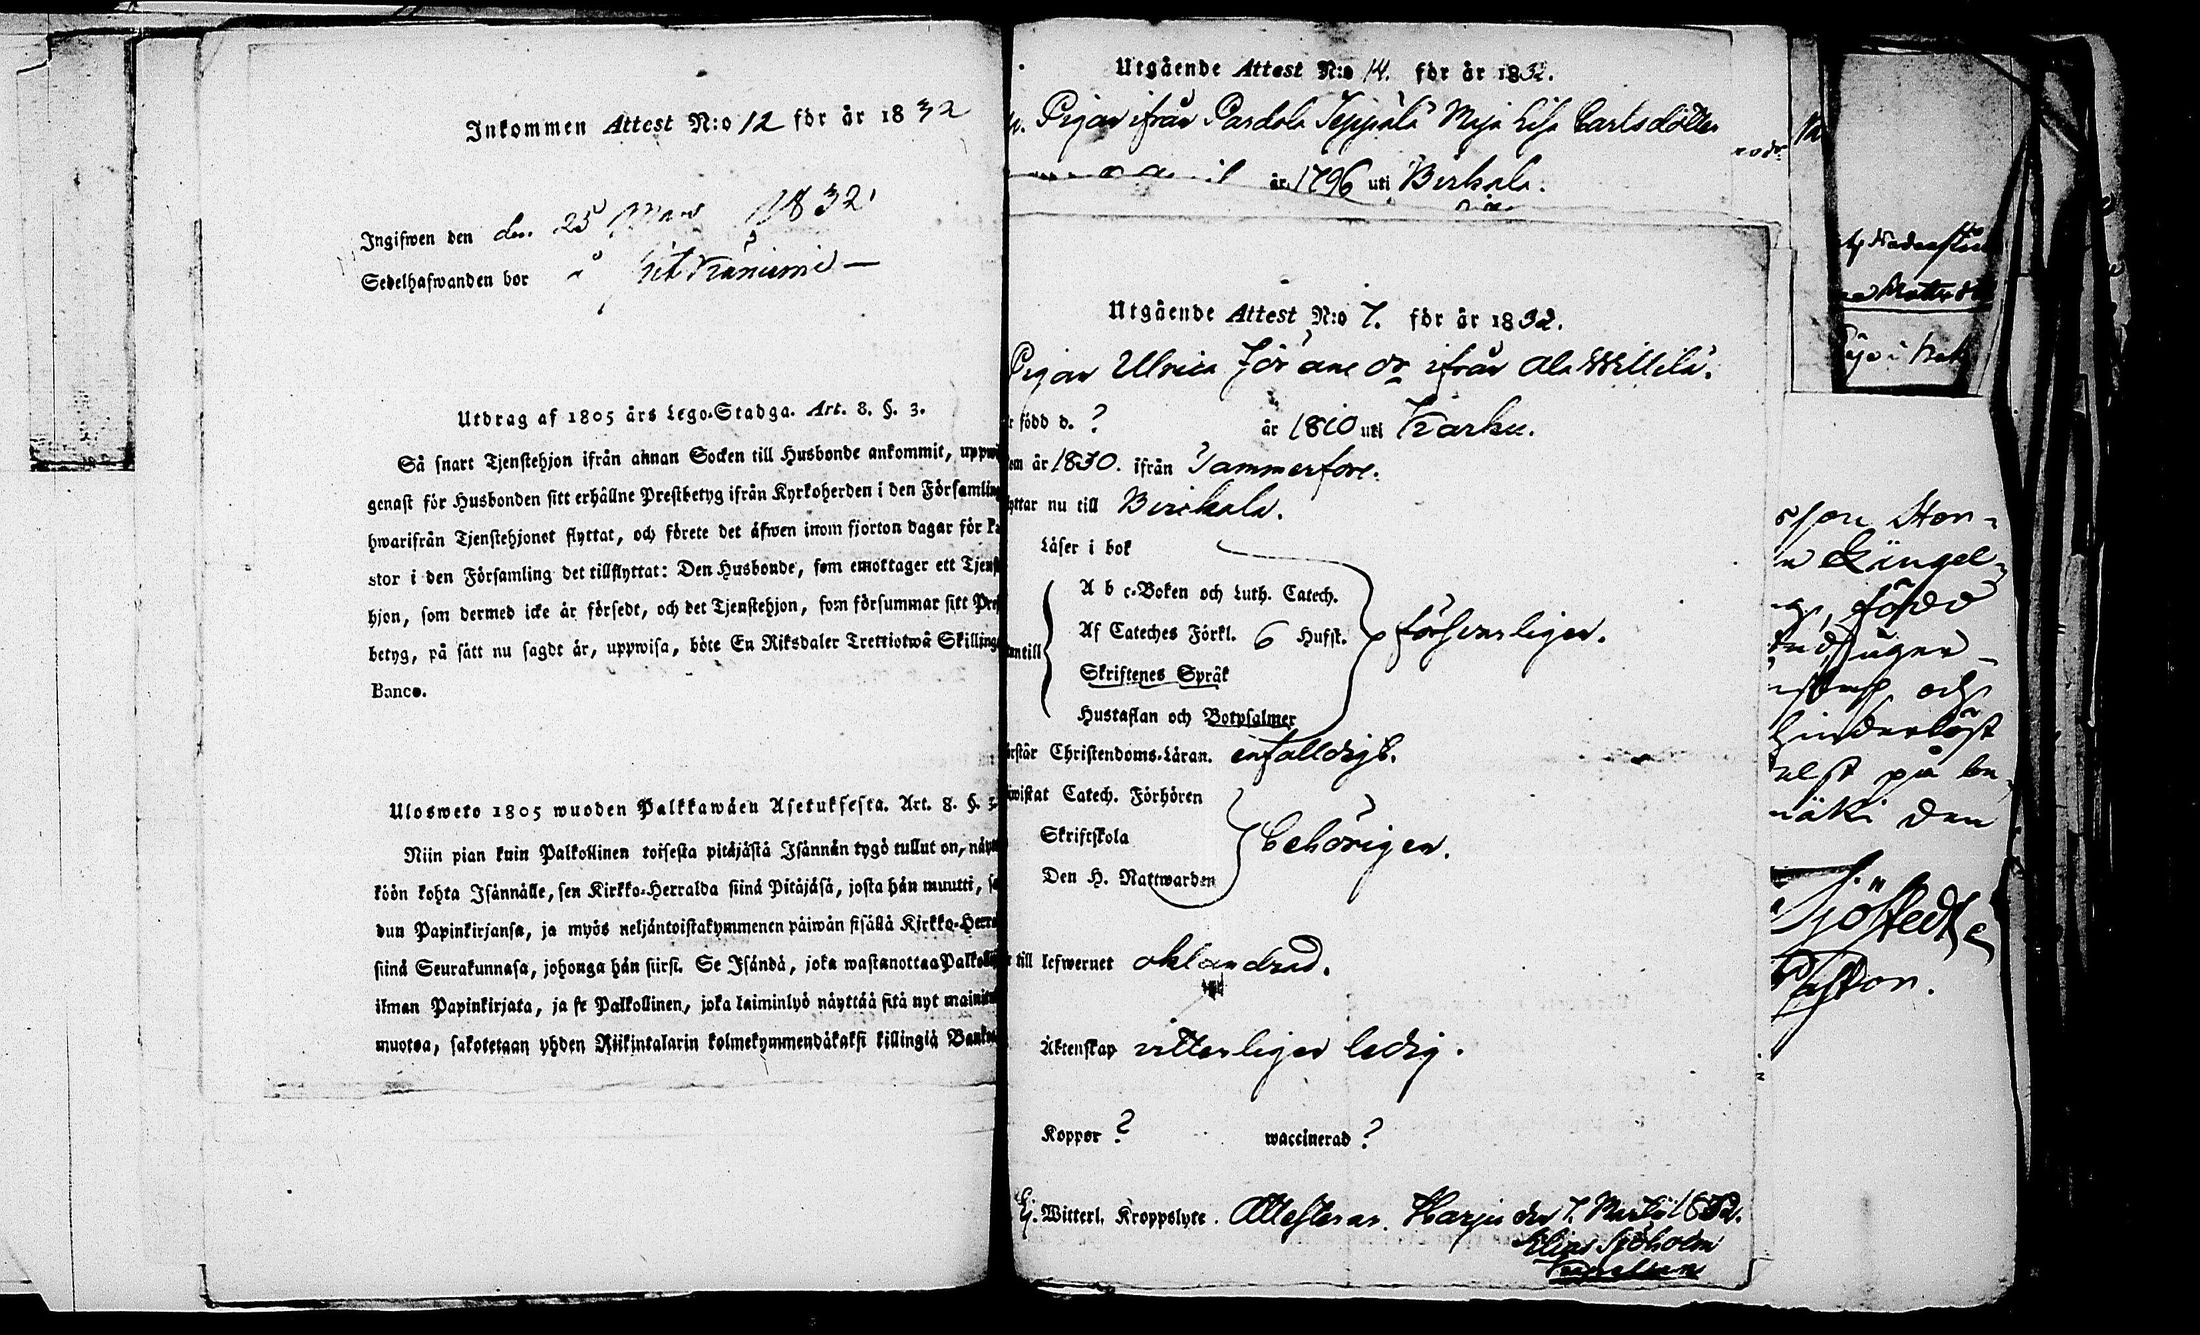 Inkommen Attest N:o 12 för år 1832
Ingifwen den den 25 Mars 1832.
Sedelhafwanden bor å
Utdrag af 1805 års Lego-Stadga. Art. 8. §. 3.
Så snart Tjenstehjon ifrån annan Socken till Husbonde ankommit, uppwi
genast för Husbonden sitt erhållne Prestbetyg ifrån Kyrkoherden i den Församling
hwarifrån Tjenstehjonet flyttat, och förete det äfwen inom fjorton dagar för Pa
stor i den Församling det tillflyttat: Den Husbonde, som emottager ett Tjenst
hjon, som dermed icke är försedt, och det Tjenstehjon, som försummar sitt Prest
betyg, på sätt nu sagdt är, uppwisa, böte En Riksdaler Trettiotwå Skillingar
Banco.
Ulosweto 1805 wuoden Palkkawäen Asetuksesta. Art. 8. §. 3.
Niin pian kuin Palkollinen toisesta pitäjästä Isännän tygö tullut on, näyt
köön kohta Isännälle, sen Kirkko-Herralda siinä Pitäjäsä, josta hän muutti, sa
dun Papinkirjansa, ja myös neljäntoistakymmenen päiwän sisällä Kirkko-Herra
siinä Seurakunnasa, johonga hän siirsi. Se Isändä, joka wastanottaa Palkolli
ilman Papinkirjata, ja se Palkollinen, joka laiminlyö näyttää sitä nyt mainitu
muotoa, sakotetaan yhden Riikintalarin kolmekymmendäkaksi killingiä Banko
Utgående Attest N:o 14. för år 1832.
Pigan ifrån Pardola Seppälä Maja Lisa Carlsdotter
år 1796 uti Birkala.
Utgående Attest N:o 7. för år 1832.
Pigan Ulrica Jöransdr ifrån Ala Willilä.
r född d. ? år 1810 uti Karku.
em år 1830. ifrån Tammerfors.
yttar nu till Birckala.
Läser i bok
A b c-Boken och Luth. Catech.
Af Cateches Förkl. 6 Hufst. försvarligen.
antill
Skriftenes Språk
Hustaflan och Botpsalmer
rstår Christendoms-Läran. enfalldigt.
wistat Catech. Förhören
Skriftskola behörigen.
Den H. Nattwarden
till lefwernet oklandrad.
Äktenskap vitterligen ledig.
Koppor ? waccinerad ?
Ej. Witterl. Kroppslyte. Attesteras. Harju den 7. Martii 1832.
Elias Sjöholm
född
och
hinderlöst
på
den
Sjöstedt
Pastor.